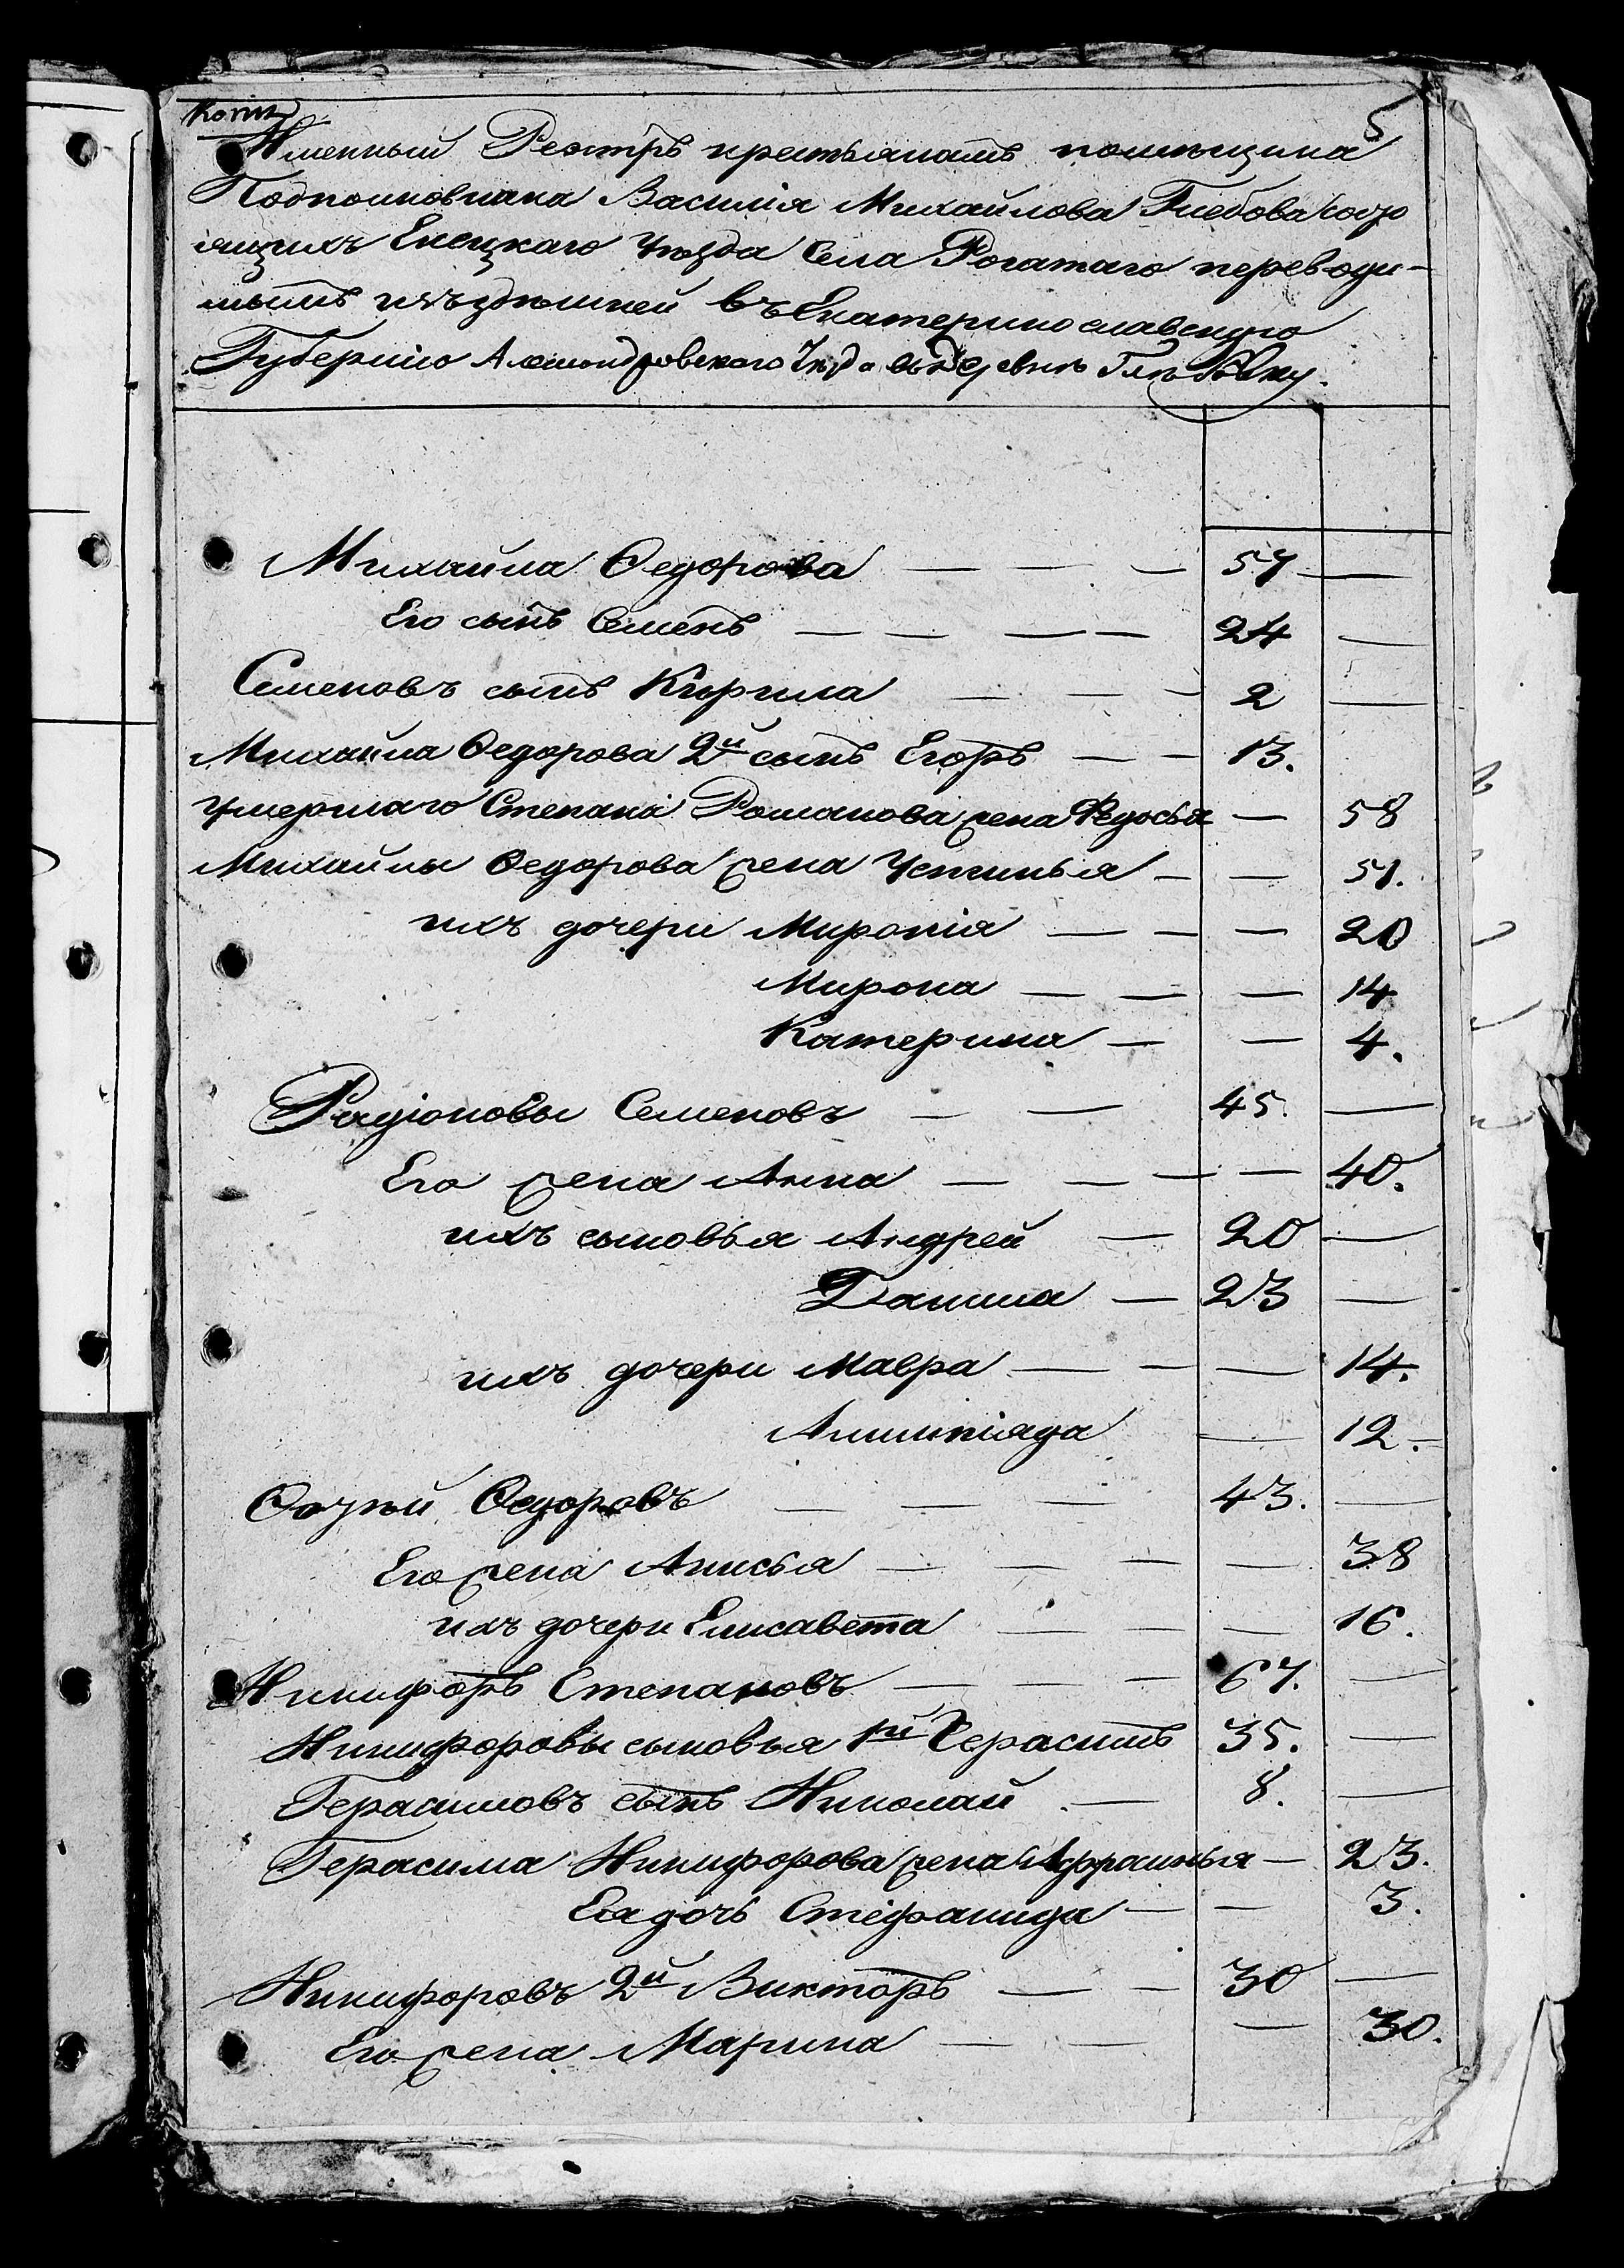 Копия
5
Именный Реэстръ крестьянамъ помѣщика
Подполковника Василія Михайлова Глебова состо
ящихъ Елецкаго уѣзда села Рогатаго переводи-
мымъ изъ здѣшней въ Екатеринославскую
Губернію Александровскаго уѣзда въ деревню Глѣбовку.
Михайла Ѳедорова — — — 57 —
Его сынъ Семенъ — — — — 24 —
Семеновъ сынъ Кирила — — — 2 —
Михайла Ѳедорова 2й сынъ Егоръ — — 13.
Умершаго Степана Романова жена Ѳедосья — 58
Михайлы Ѳедорова жена Устинья — — 51.
ихъ дочери Миронія — — — 20
Мирона — — — 14
Катерина — — 4.
Радіоновы Семеновъ — — 45. —
Его жена Анна — — — — 40.
ихъ сыновья Андрей — 20 —
Данила — 23 —
ихъ дочери Мавра — — — 14.
Алимпіяда — 12.
Ѳедоровъ — — — 43. —
Его жена Анисья — — — — 38
ихъ дочери Елисавета — — — — 16.
Никифоръ Степановъ — — — 67. —
Никифоровы сыновья 1й Герасимъ 35. —
Герасимовъ сынъ Николай — 8. —
Герасима Никифорова жена Афросинья — 23.
Ея дочь Стефанида — — 3.
Никифоровъ 2й Викторъ — — 30 —
Его жена Марина — — — 30.